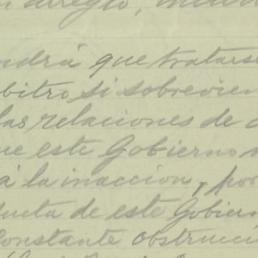 arreglo,
ndrá que tratarse
bitro si sobrevien
las relaciones de
ue este Gobierno
á la inaccion, por
ducta de este Gobier
constante obstrucci